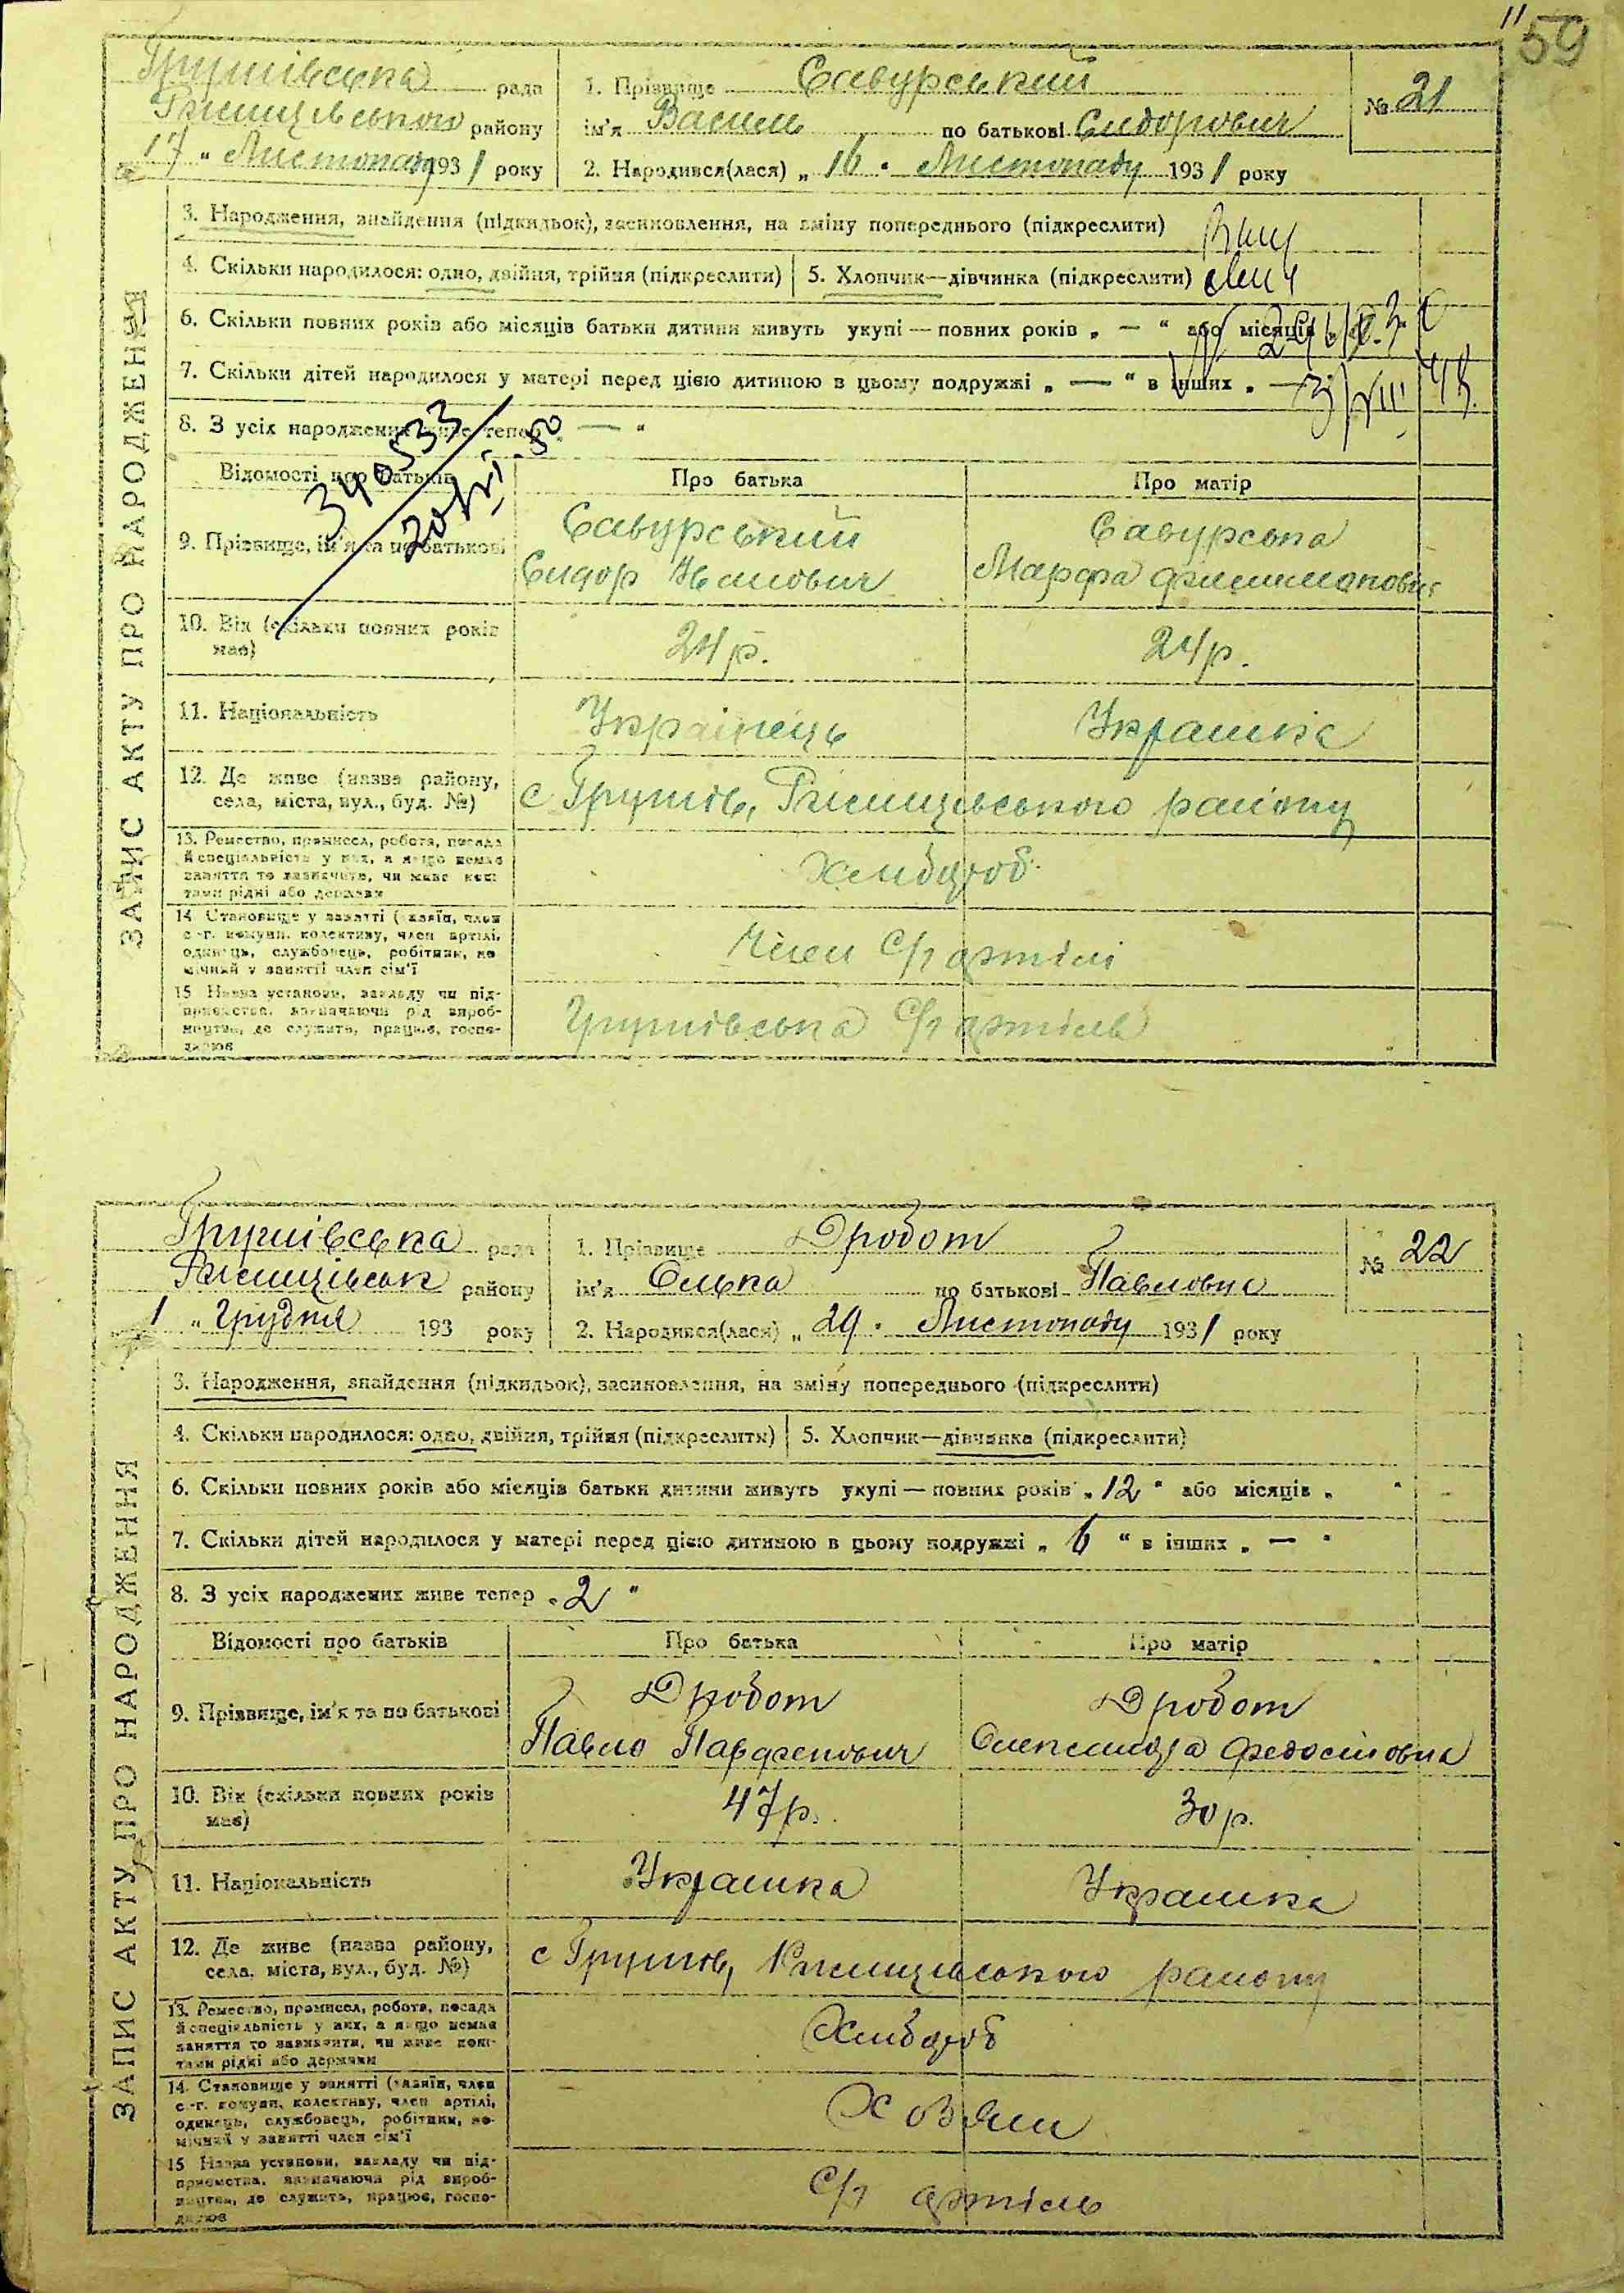 59
Грушівська рада
району
17 " Листопаду 1931 року
1. Прізвище Савурський
ім'я Василь по батькові Сидорович
2. Народився(лася) „ 16 " Листопаду 1931 року
№ 21
3. Народження, знайдення (підкидьок), засиновлення, на зміну попереднього (підкреслити)
4. Скільки народилося: одно, двійня, трійня (підкреслити) 5. Хлопчик—дівчинка (підкреслити)
6. Скільки повних років або місяців батьки дитини живуть укупі — повних років „ — " або місяців
7. Скільки дітей народилося у матері перед цією дитиною в цьому подружжі „ — " в інших „ —
8. З усіх народжених живе тепер „ — "
340533
Відомості про батьків Про батька Про матір
9. Прізвище, ім'я та по батькові
Савурський
Сидор Іванович
Савурська
Марфа
10. Вік (скільки повних років має)
24 р. 24 р.
11. Національність Українець Українка
12. Де живе (назва району, села, міста, вул., буд. №)
с Грушів, району
13. Ремество, промисел, робота, посада
й спеціяльність у них, а якщо немає
заняття то зазначити, чи живе кош-
тами рідні або держави
Хлібороб
14. Становище у занятті (хазяїн, член
с.-г. комуни, колективу, член артілі,
одинець, службовець, робітник, по-
мічний у занятті член сім'ї
Член С/г артілі
15 Назва установи, закладу чи під-
приємства, зазначаючи рід вироб-
ництва, де служить, працює, госпо-
дарює
Грушівська С/г артіль
ЗАПИС АКТУ ПРО НАРОДЖЕННЯ
Грушівська рада
району
1 " Грудня 193 року
1. Прізвище Дробот
ім'я Олька по батькові Павловна
2. Народився(лася) „ 29 " Листопаду 1931 року
№ 22
3. Народження, знайдення (підкидьок), засиновлення, на зміну попереднього (підкреслити)
4. Скільки народилося: одно, двійня, трійня (підкреслити) 5. Хлопчик—дівчинка (підкреслити)
6. Скільки повних років або місяців батьки дитини живуть укупі — повних років „ 12 " або місяців „ "
7. Скільки дітей народилося у матері перед цією дитиною в цьому подружжі „ 6 " в інших „ — "
8. З усіх народжених живе тепер „ 2 "
Відомості про батьків Про батька Про матір
9. Прізвище, ім'я та по батькові
Дробот
Павло Парфенович
Дробот
Олександра Федосіовна
10. Вік (скільки повних років має)
47 р. 30 р.
11. Національність Українка Українка
12. Де живе (назва району, села, міста, вул., буд. №)
с Грушів, району
13. Ремество, промисел, робота, посада
й спеціяльність у них, а якщо немає
заняття то зазначити, чи живе кош-
тами рідні або держави
Хлібороб
14. Становище у занятті (хазяїн, член
с.-г. комуни, колективу, член артілі,
одинець, службовець, робітник, по-
мічний у занятті член сім'ї
Хозяін
15 Назва установи, закладу чи під-
приємства, зазначаючи рід вироб-
ництва, де служить, працює, госпо-
дарює
С/г артіль
ЗАПИС АКТУ ПРО НАРОДЖЕННЯ